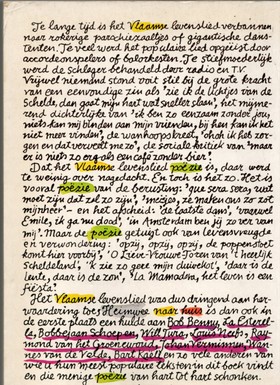 Te lange tijd is het Vlaamse levenslied verbannen
naar rokerige parochiezaaltjes of gigantische dans-
tenten. Te veel werd het populaire lied opgeëist door
accordeonspelers of bolorkesten. Te stiefmoederlijk
werd de schlager behandeld door radio en T.V.
Vrijwel niemand stond ooit stil bij de grote kracht
van een eenvoudige zin als 'zie ik de lichtjes van de
Schelde, dan gaat mijn hart wat sneller slaan', het mijme-
rend dichterlijke van 'ik ben zo eenzaam zonder jou,
niets kan mij binden aan mijn vrienden, bij hen kan ik het
niet meer vinden', de wanhoopsbreet, 'ohoh ik heb zor-
gen en dat verveelt me zo', de sociale kritiek van 'maar
er is niets zo erg als een café zonder bier'.
Dat het Vlaamse levenslied poëzie is, daar werd
te weinig over nagedacht. En toch is het zo. Het is
vooral poëzie van de berusting: 'que sera sera, wat
moet zijn dat zal zo zijn', 'meisjes, ze maken ons zo zot
mijnheer' – en het afscheid: 'de laatste dans', 'vaarwel
Emilie, ik ga nu dood', 'in Amsterdam ben jij zo ver van
mij'. Maar de poëzie getuigt ook van levensvreugde
en verwondering: 'opzij, opzij, opzij, de poppenstoet
komt hier voorbij', 'O Lieve-Vrouwe-Toren van 't heerlijk
Scheldeland', 'k zie zo geer mijn duivekot', 'daar is de
lente, daar is de zon', 'Eviva Mamadou, het leven is een
fiësta'!
Het Vlaamse levenslied was dus dringend aan her-
waardering toe. Heimwee naar huis is dan ook in
de eerste plaats een hulde aan Bob Benny, La Esterel-
la, Bobbejaan Schoepen, Will Tura, Louis Neefs, Ray-
mond van het Groenewoud, Johan Verminnen, Wan-
nes van de Velde, Bart Kaëll en zo vele anderen van
wie u hun meest populaire teksten in dit boek vindt
en die menige poëzie van hart tot hart schonken.